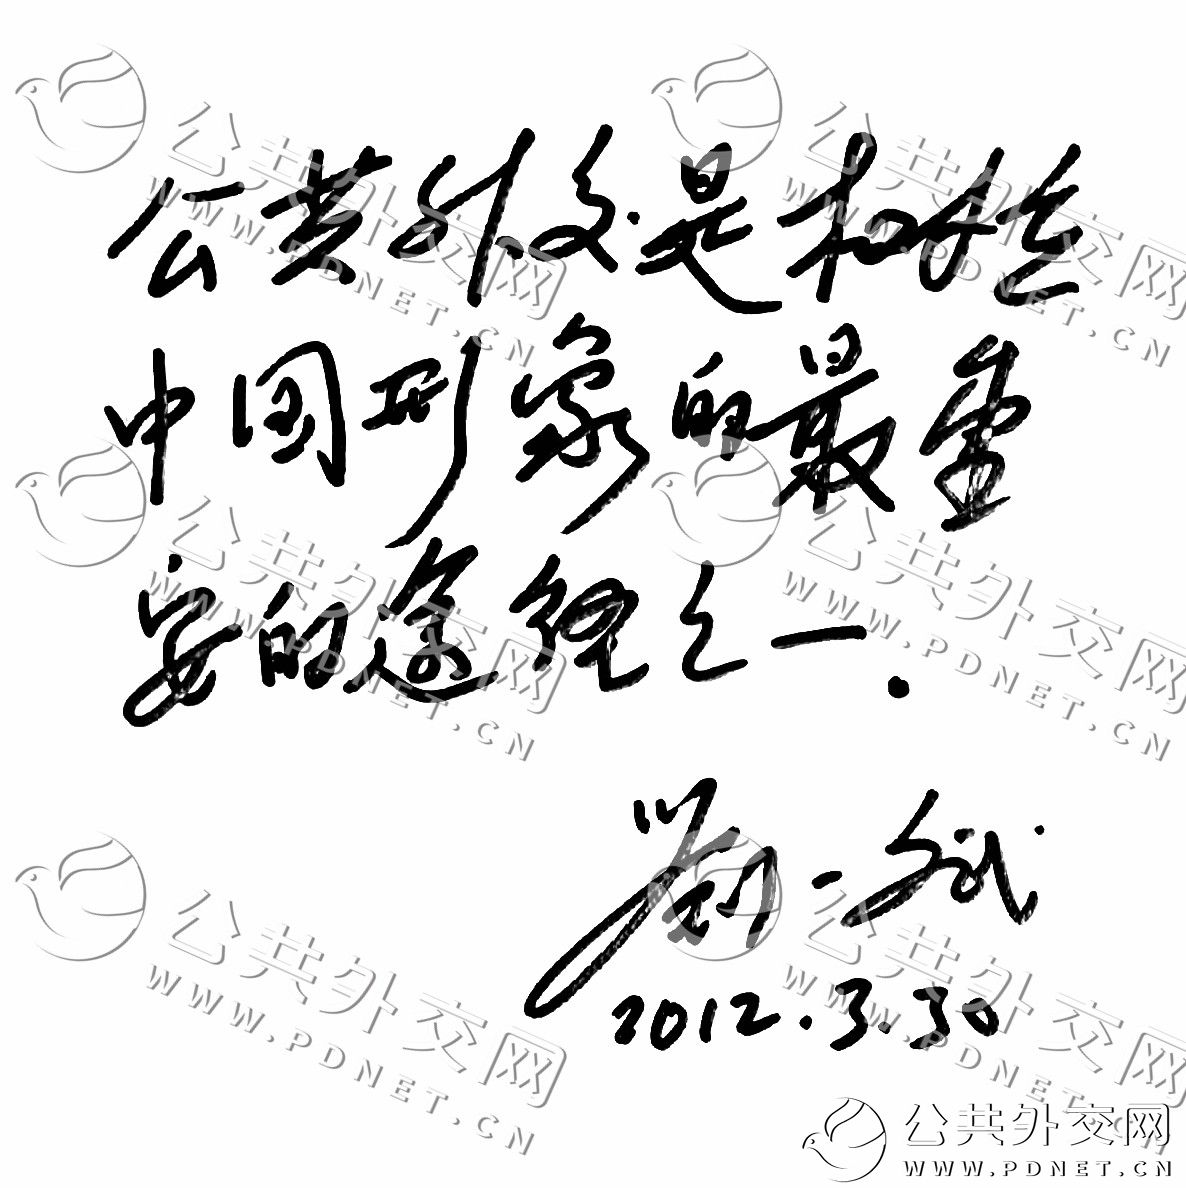 公共外交网
WWW.PDNET.CN
公共外交网
WWW.PDNET.CN
公共外交是树立
中国形象的最重
要的途径之一.
公共外交网
WWW.PDNET.CN
公共外交网
WWW.PDNET.CN
劉一斌
2012.3.30
公共外交网
WWW.PDNET.CN
公共外交网
WWW.PDNET.CN
公共外交网
WWW.PDNET.CN